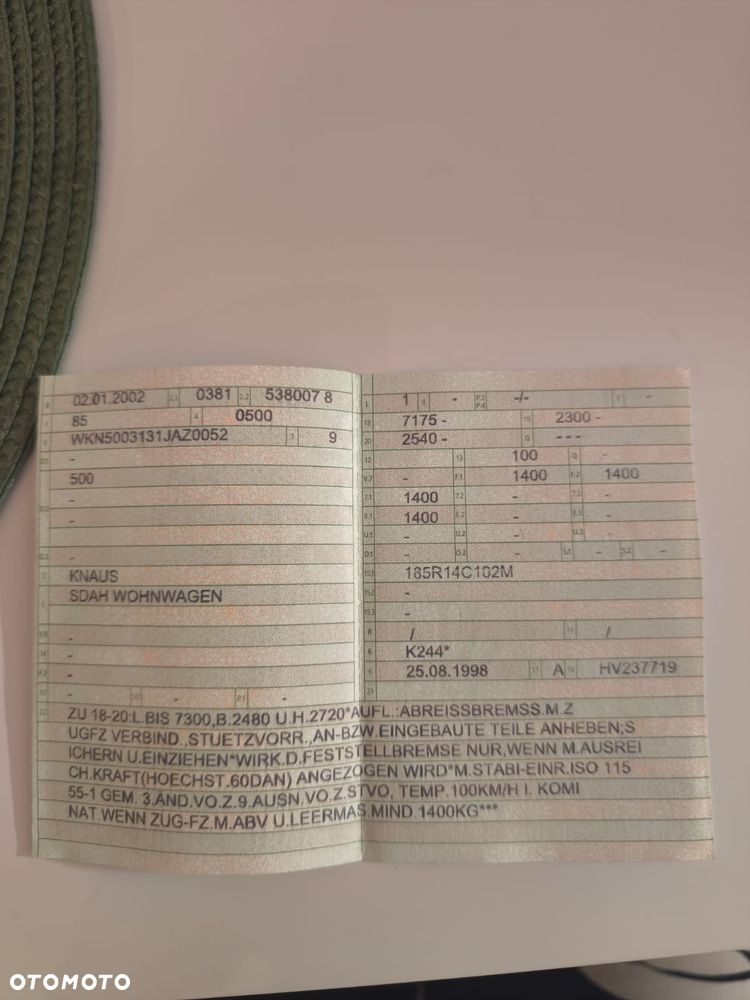 B 02.01.2002 2.1 0381 2.2 538007 8
J 85 4 0500
E WKN5003131JAZ0052 3 9
-
500
-
-
-
KNAUS
SDAH WOHNWAGEN
-
-
-
- -
L 1 9 - P.2 P.4 -/- T -
18 7175 - 19 2300 -
20 2540 - G - - -
12 13 100 Q -
V.7 - F.1 1400 F.2 1400
7.1 1400 7.2 - 7.3 -
8.1 1400 8.2 - 8.3 -
U.1 - U.2 - U.3
O.1 - O.2 - S.1 - S.2 -
15.1 185R14C102M
15.2 -
15.3 -
R / 11 /
K K244*
6 25.08.1998 17 A 16 HV237719
21
22 ZU 18-20:L.BIS 7300,B.2480 U.H.2720*AUFL.:ABREISSBREMSS.M.Z
UGFZ VERBIND.,STUETZVORR.,AN-BZW.EINGEBAUTE TEILE ANHEBEN;S
ICHERN U.EINZIEHEN*WIRK.D.FESTSTELLBREMSE NUR,WENN M.AUSREI
CH.KRAFT(HOECHST.60DAN) ANGEZOGEN WIRD*M.STABI-EINR.ISO 115
55-1 GEM. 3.ÄND.VO.Z.9.AUSN.VO.Z.STVO, TEMP.100KM/H I. KOMI
NAT.WENN ZUG-FZ.M.ABV U.LEERMAS.MIND.1400KG***
OTOMOTO